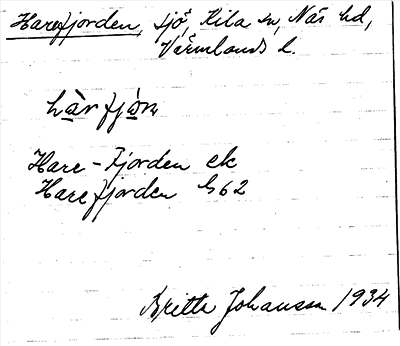 Harefjorden, sjö, Kila sn, Näs hd,
Värmlands l.
hàrfjòrn
Hare-Fjorden ek
Harefjorden G62
Britta Johansson 1934